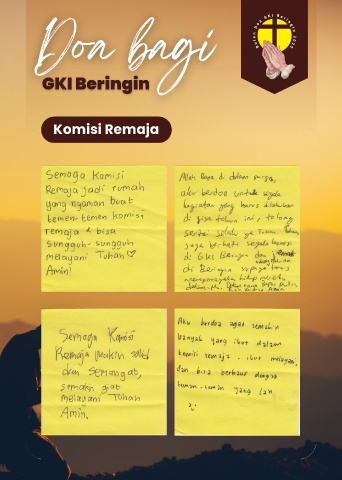 Doa bagi
GKI Beringin
Bulan Doa GKI Beringin
Komisi Remaja
Semoga Komisi
Remaja jadi rumah
yang nyaman buat
temen-temen komisi
remaja & bisa
sungguh-sungguh
melayani Tuhan ♡
Amin!
Allah Bapa di dalam surga,
aku berdoa untuk segala
kegiatan yang harus dilakukan
di sisa tahun ini, tolong
sertai selalu ya Tuhan.
juga berkati segala
di GKI Beringin dan
di Beringin supaya terus
hidup
Semoga Komisi
Remaja makin solid
dan semangat,
semakin giat
melayani Tuhan
Amin.
Aku berdoa agar semakin
banyak yang ikut dalam
komisi remaja, ikut melayani,
dan bisa berbaur dengan
teman-teman yang lain
:)